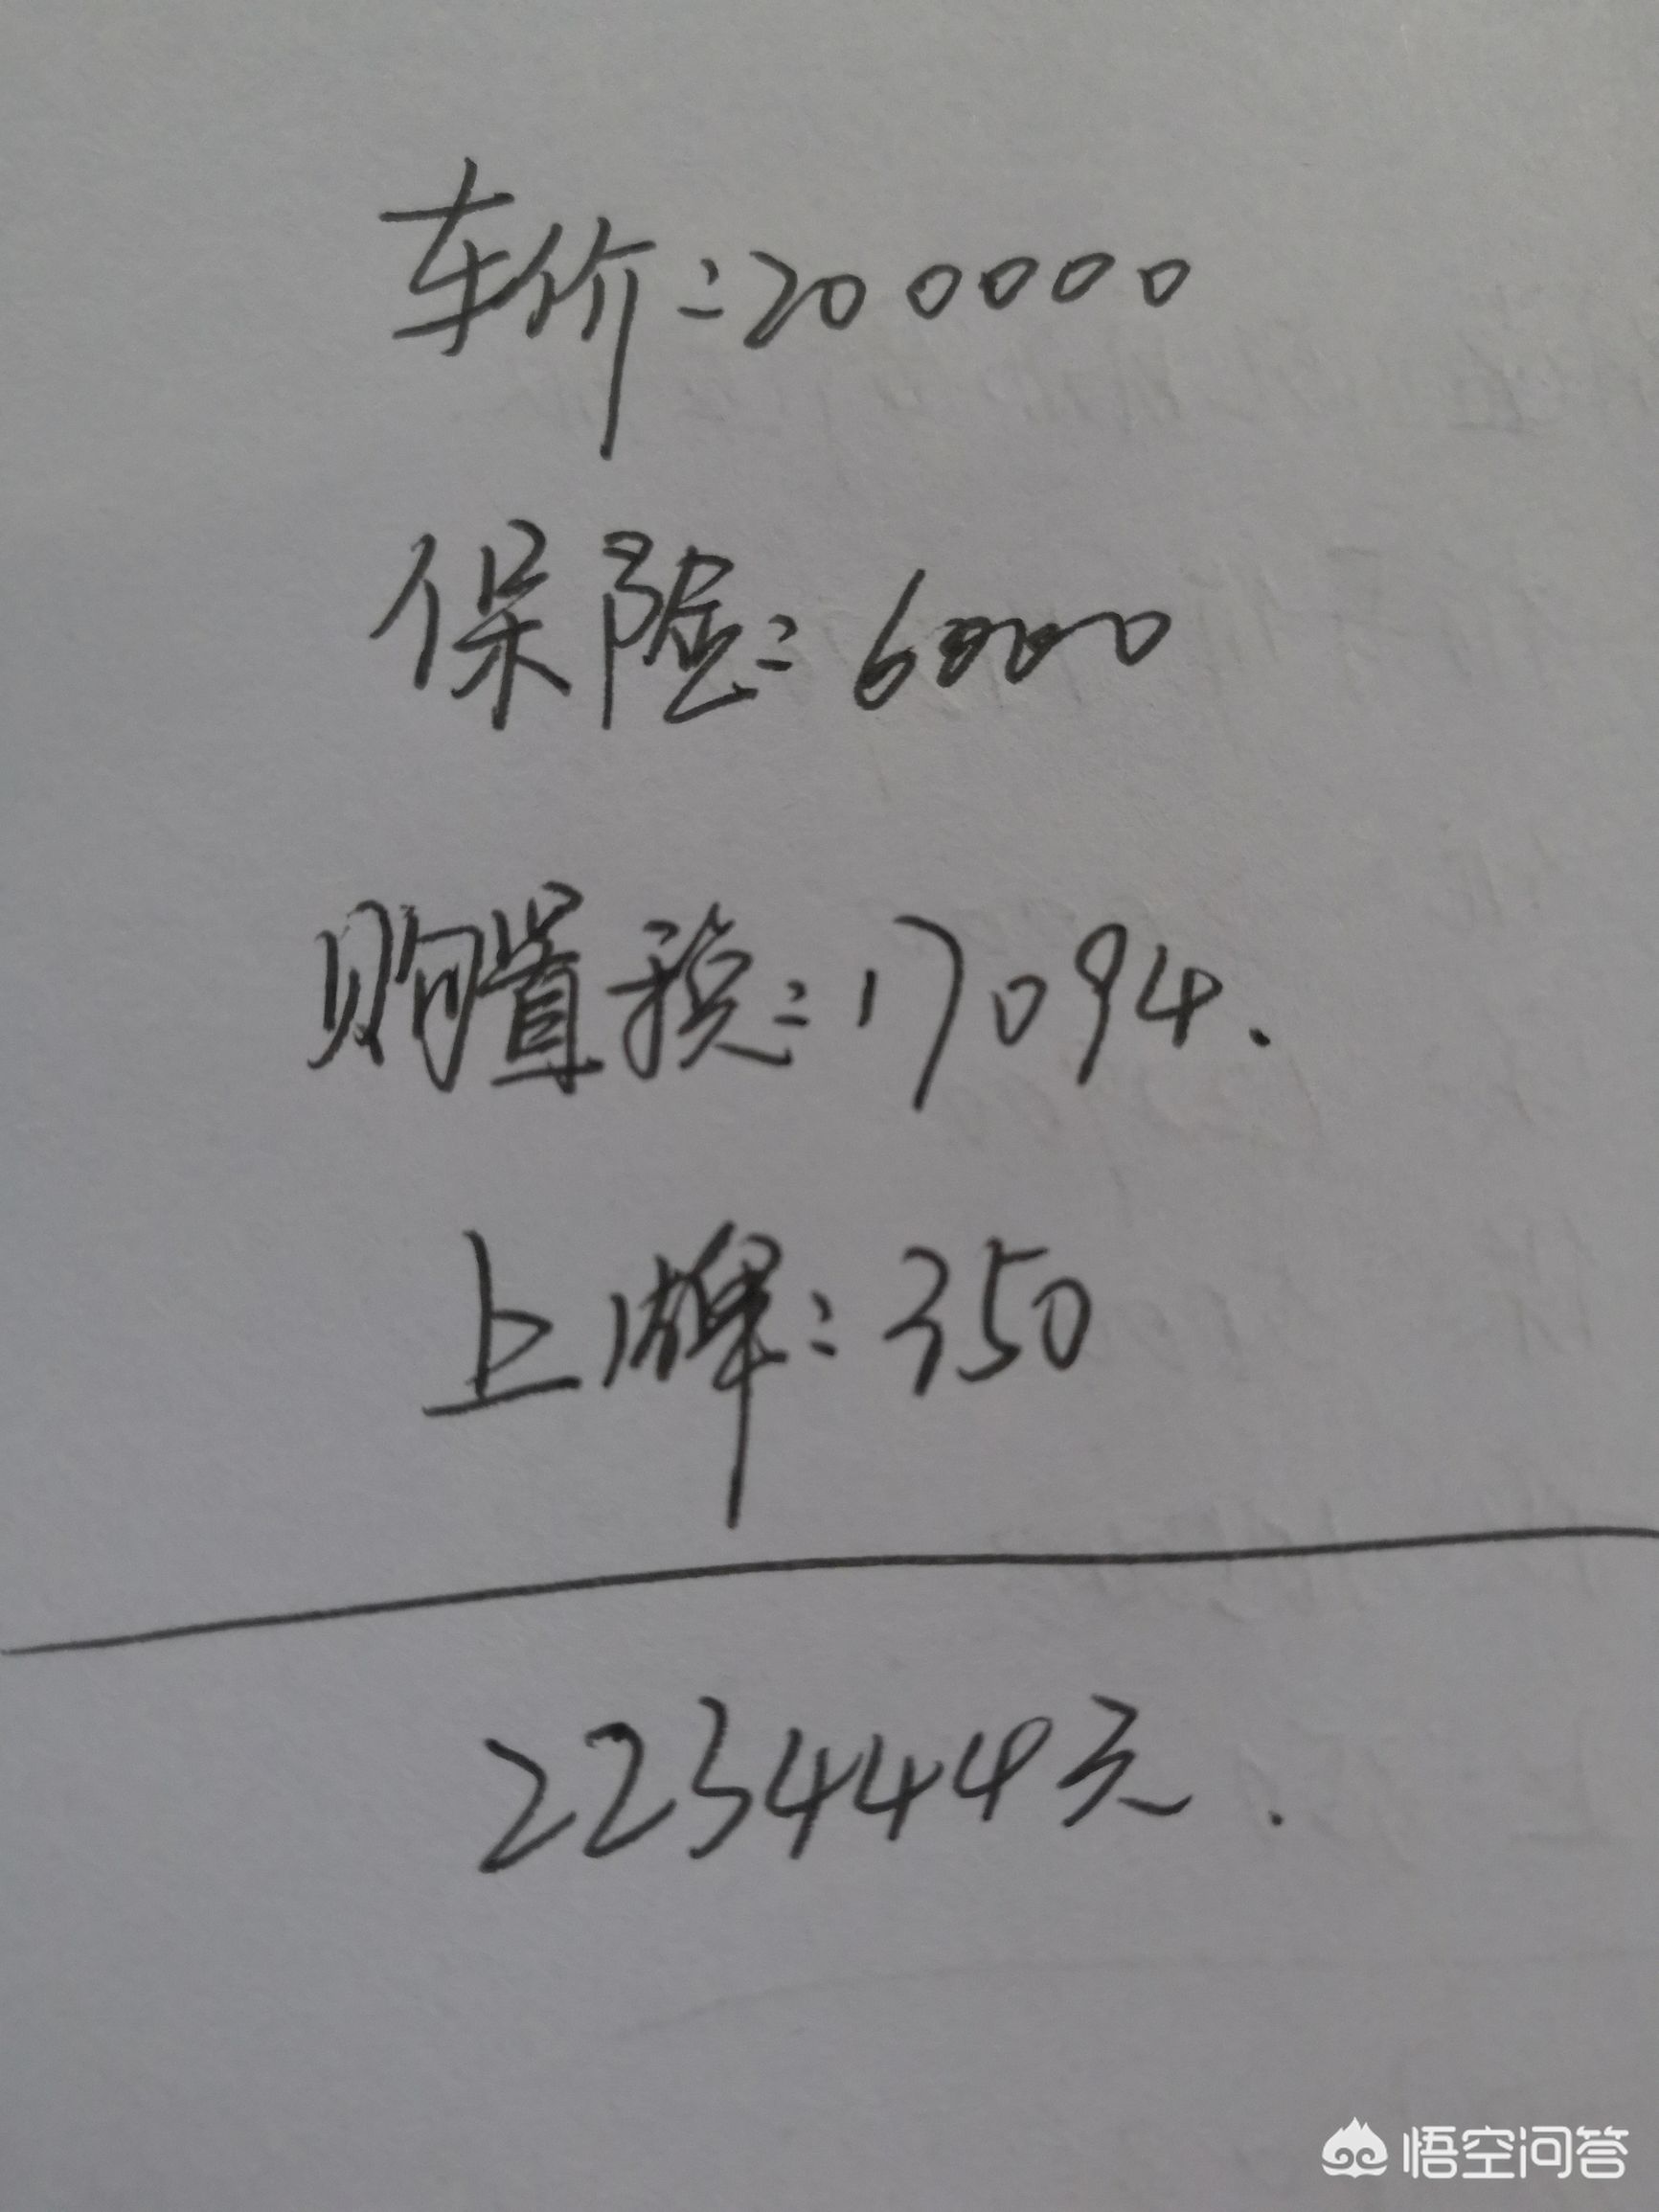 车价:200000
保险:6000
购置税:17094.
上牌:350
223444元.
悟空问答